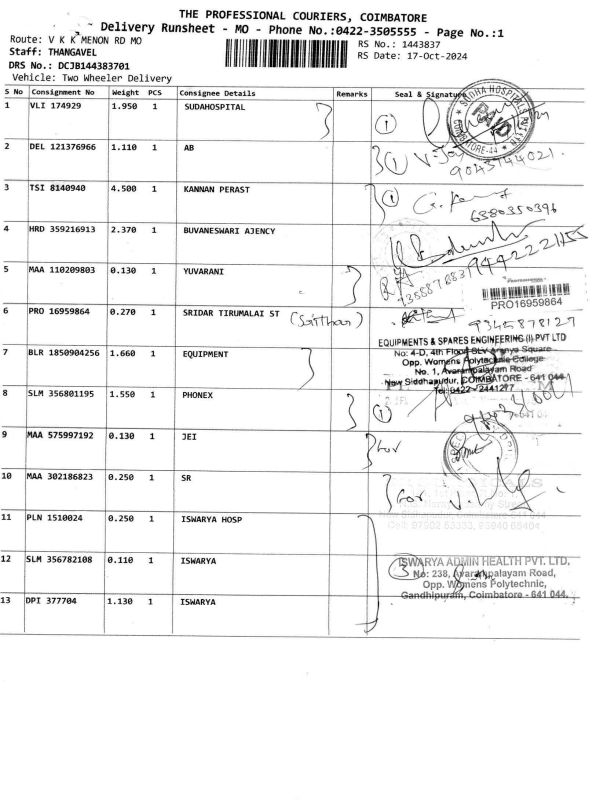 THE PROFESSIONAL COURIERS, COIMBATORE
Delivery Runsheet - MO - Phone No.:0422-3505555 - Page No.:1
Route: V K K MENON RD MO
RS No.: 1443837
Staff: THANGAVEL
RS Date: 17-Oct-2024
DRS No.: DCJB144383701
Vehicle: Two Wheeler Delivery
S No Consignment No Weight PCS Consignee Details Remarks Seal & Signature
1 VLI 174929 1.950 1 SUDAHOSPITAL
1
2 DEL 121376966 1.110 1 AB
1
9043744021.
3 TSI 8140940 4.500 1 KANNAN PERAST
1
6380350396
4 HRD 359216913 2.370 1 BUVANESWARI AJENCY
9442221155
5 MAA 110209803 0.130 1 YUVARANI
PRO16959864
6 PRO 16959864 0.270 1 SRIDAR TIRUMALAI ST
9345878127
EQUIPMENTS & SPARES ENGINEERING (I) PVT LTD
7 BLR 1850904256 1.660 1 EQUIPMENT
No: 4-D, 4th Floor SLV Aranya Square
Opp. Womens Polytechnic College
No. 1, Avarampalayam Road
New Siddhapudur, COIMBATORE - 641 044
Tel: 0422 - 2441277
8 SLM 356801195 1.550 1 PHONEX
1
9 MAA 575997192 0.130 1 JEI
for
10 MAA 302186823 0.250 1 SR
for
11 PLN 1510024 0.250 1 ISWARYA HOSP
12 SLM 356782108 0.110 1 ISWARYA
3
ISWARYA ADMIN HEALTH PVT. LTD.
No: 238, Avarampalayam Road,
Opp. Womens Polytechnic,
Gandhipuram, Coimbatore - 641 044.
13 DPI 377704 1.130 1 ISWARYA